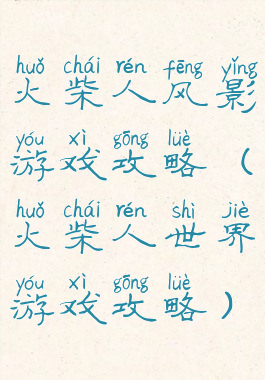 huǒ chái rén fēng yǐng
火柴人风影
yóu xì gōng lüè
游戏攻略（
huǒ chái rén shì jiè
火柴人世界
yóu xì gōng lüè
游戏攻略）